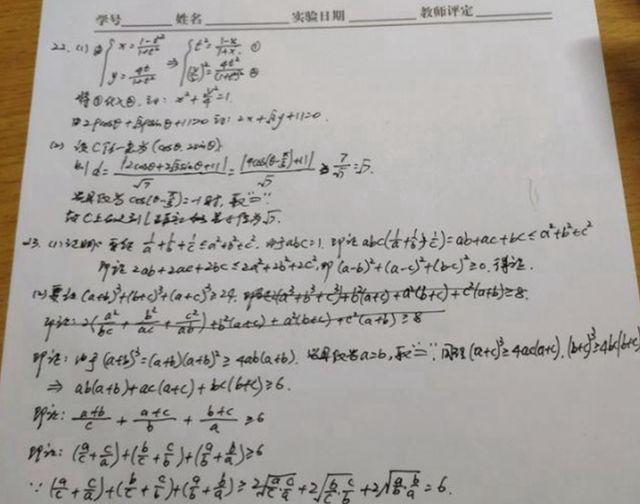 学号 姓名 实验日期 教师评定
22. (1) 由 { x = (1-t²)/(1+t²) , y = 4t/(1+t²) ⇒ { t² = (1-x)/(1+x) ① , (y/2)² = 4t²/(1+t²)² ②
将①代入②, 记: x² + y²/4 = 1.
由 2ρcosθ + √3ρsinθ + 11 = 0 记: 2x + √3y + 11 = 0.
(2) 设C任一点为 (cosθ, 2sinθ)
则 d = |2cosθ + 2√3sinθ + 11| / √7 = |4cos(θ-π/3) + 11| / √7 ≥ 7/√7 = √7.
当且仅当 cos(θ-π/3) = -1 时, 取“=”.
故C上的点到l 为√7.
23. (1) 证明: 1/a + 1/b + 1/c ≤ a² + b² + c². 由于 abc = 1. 即证 abc(1/a + 1/b + 1/c) = ab + ac + bc ≤ a² + b² + c²
即证 2ab + 2ac + 2bc ≤ 2a² + 2b² + 2c², 即 (a-b)² + (a-c)² + (b-c)² ≥ 0. 得证.
(2) 要证 (a+b)³ + (b+c)³ + (a+c)³ ≥ 24. 即证 (a³+b³+c³) + b²(a+c) + a²(b+c) + c²(a+b) ≥ 8.
即证: 2(a²/bc + b²/ac + c²/ab) + b²(a+c) + a²(b+c) + c²(a+b) ≥ 8
即证: 由于 (a+b)³ = (a+b)(a+b)² ≥ 4ab(a+b). 当且仅当 a=b, 取“=”, 同理 (a+c)³ ≥ 4ac(a+c), (b+c)³ ≥ 4bc(b+c)
⇒ ab(a+b) + ac(a+c) + bc(b+c) ≥ 6.
即证: (a+b)/c + (a+c)/b + (b+c)/a ≥ 6
即证: (a/c + c/a) + (b/c + c/b) + (a/b + b/a) ≥ 6
∵ (a/c + c/a) + (b/c + c/b) + (a/b + b/a) ≥ 2√(a/c · c/a) + 2√(b/c · c/b) + 2√(a/b · b/a) = 6.